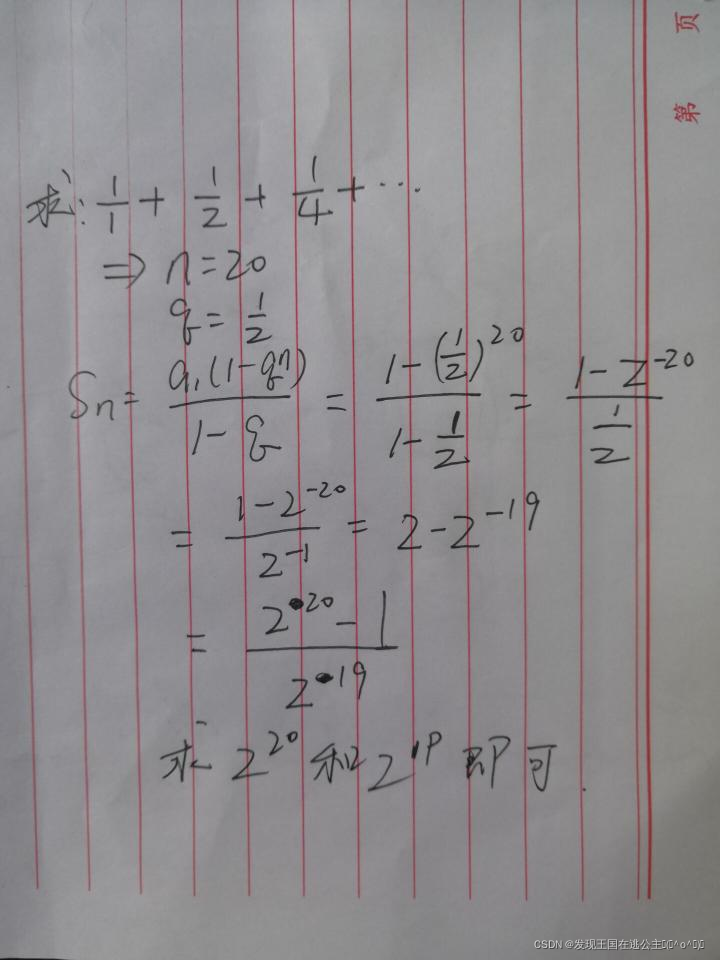 求: 1/1 + 1/2 + 1/4 + ...
⇒ n=20
q = 1/2
Sn = a₁(1-qⁿ)/(1-q) = (1-(1/2)^20)/(1-1/2) = (1-2^-20)/(1/2)
= (1-2^-20)/(2^-1) = 2-2^-19
= (2^20 - 1)/(2^19)
求 2^20 和 2^19 即可.
第 页
CSDN @发现王国在逃公主